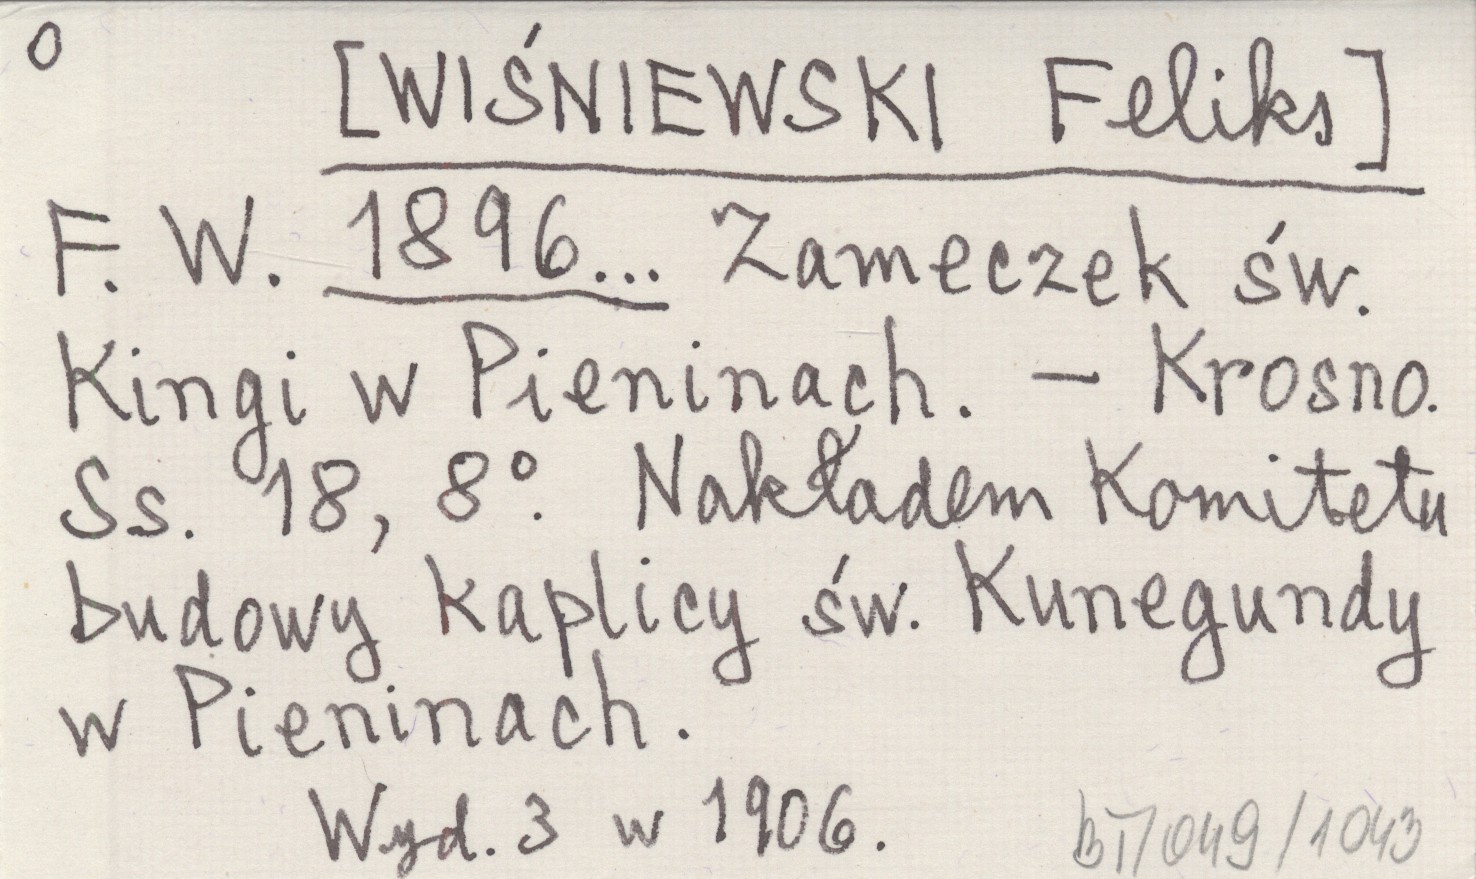 0
[WIŚNIEWSKI Feliks]
F. W. 1896... Zameczek św.
Kingi w Pieninach. – Krosno.
Ss. 18, 8°. Nakładem Komitetu
budowy kaplicy św. Kunegundy
w Pieninach.
Wyd. 3 w 1906.
BT/049/1043